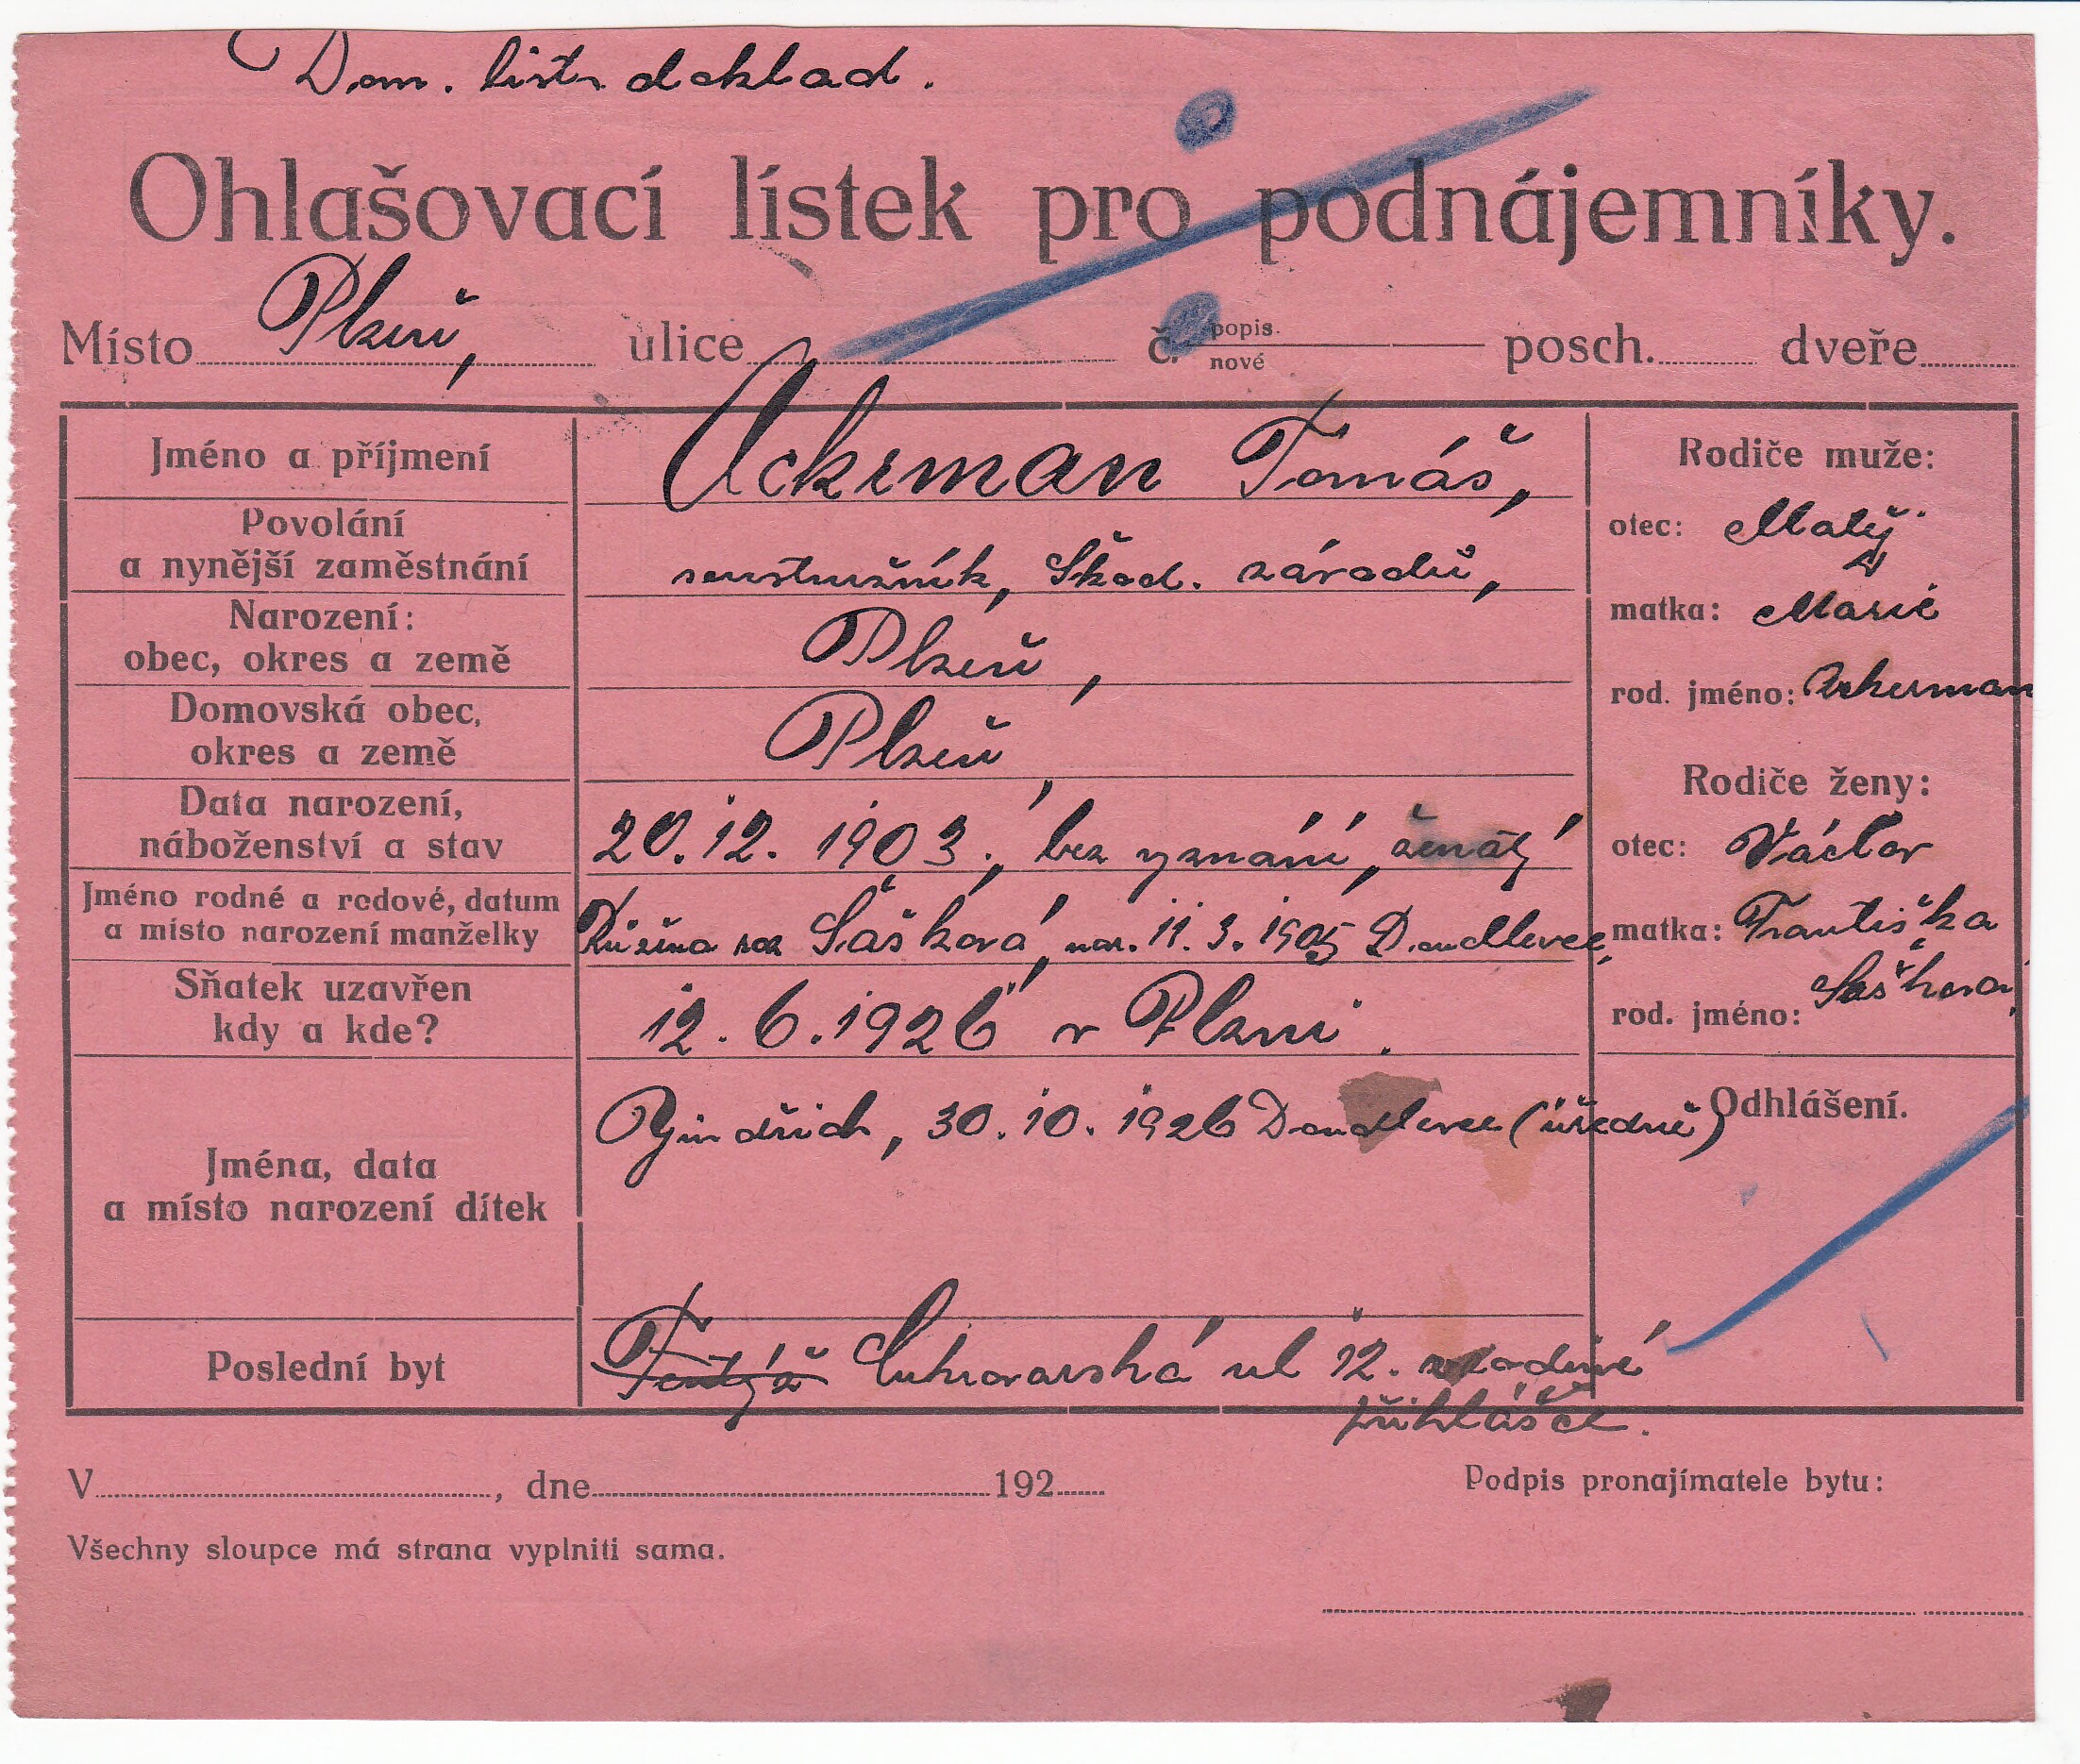 Dom. list. doklad.
Ohlašovací lístek pro podnájemníky.
Místo Plzeň, ulice č. popis. nové posch. dveře
Jméno a příjmení Ackerman Tomáš,
Povolání
a nynější zaměstnání soustružník, Škod. závodů,
Narození:
obec, okres a země Plzeň,
Domovská obec,
okres a země Plzeň,
Data narození,
náboženství a stav 20. 12. 1903., bez vyznání, ženatý
Jméno rodné a rodové, datum
a místo narození manželky Růžena roz Šašková, nar. 11. 3. 1905 Doudlevce,
Sňatek uzavřen
kdy a kde? 12. 6. 1926 v Plzni.
Jména, data
a místo narození dítek Jindřich, 30. 10. 1926 Doudlevce (úředně)
Poslední byt Cukrovarská ul 12. rodinné
přihlášce.
Rodiče muže:
otec: Matěj
matka: Marie
rod. jméno: Ackerman
Rodiče ženy:
otec: Václav
matka: Františka
rod. jméno: Šašková
Odhlášení.
V , dne 192
Podpis pronajímatele bytu:
Všechny sloupce má strana vyplniti sama.